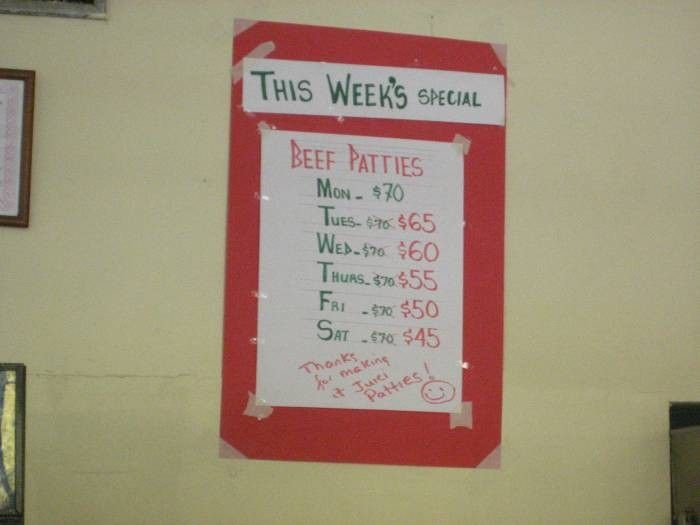 THIS WEEK'S SPECIAL
BEEF PATTIES
MON - $70
TUES - $70 $65
WED - $70 $60
THURS - $70 $55
FRI - $70 $50
SAT - $70 $45
Thanks
for making
it Juici
Patties!